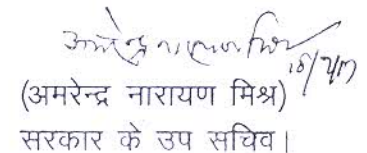 अमरेन्द्र नारायण मिश्र
(अमरेन्द्र नारायण मिश्र)
सरकार के उप सचिव।